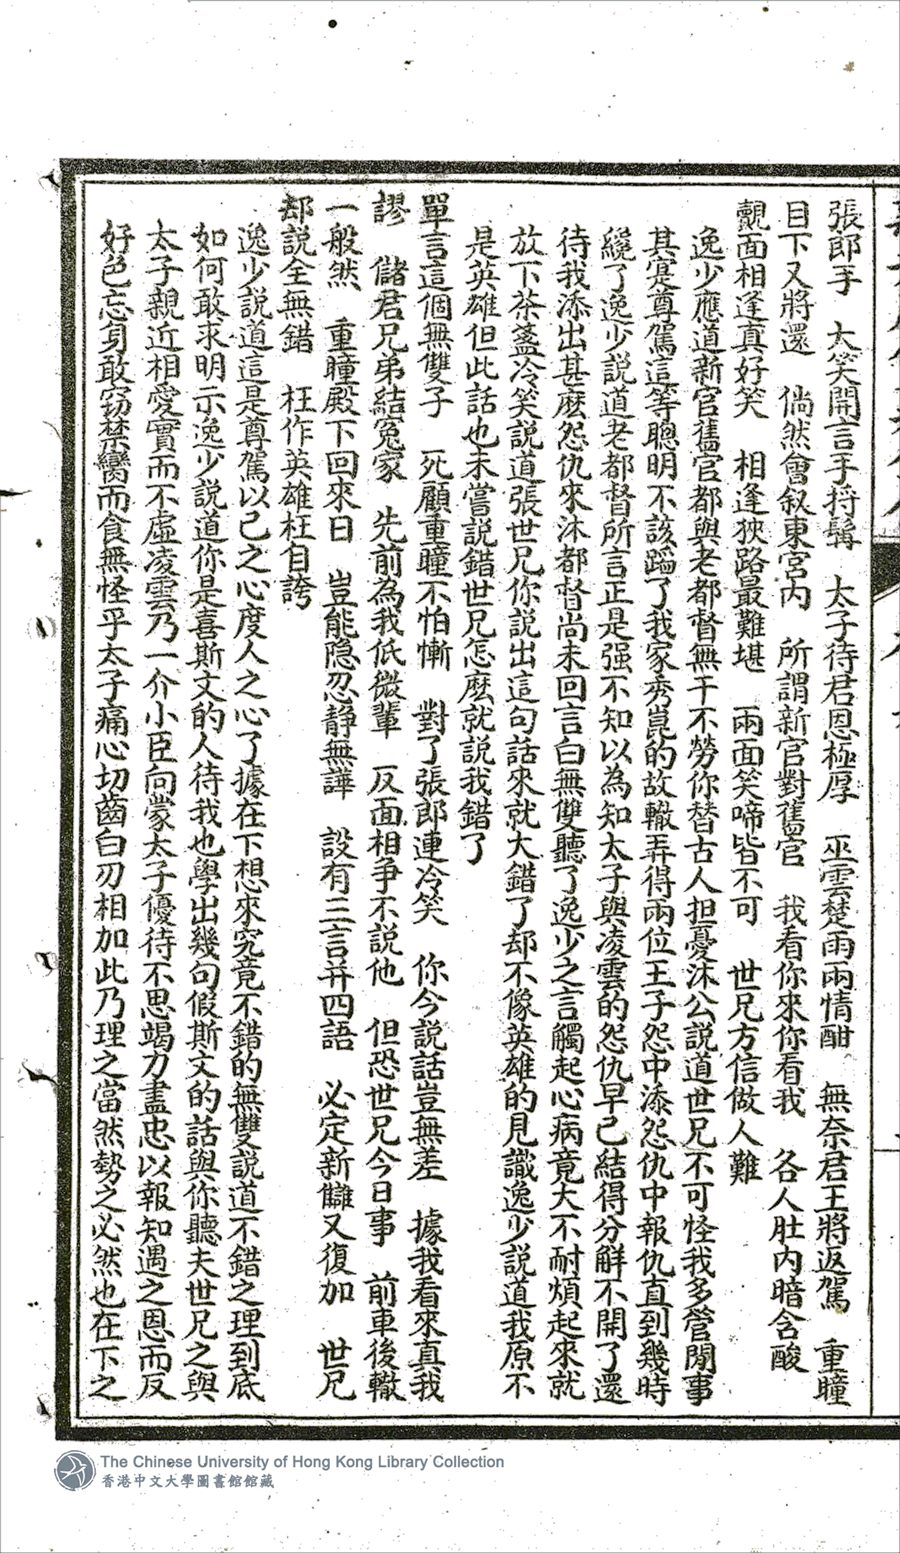 張郎手　大笑開言手捋髯　太子待君恩極厚　巫雲楚雨兩情酣　無奈君王將返駕　重瞳
目下又將還　倘然會叙東宮内　所謂新官對舊官　我看你來你看我　各人肚内暗含酸
覿面相逢真好笑　相逢狹路最難堪　兩面笑啼皆不可　世兄方信做人難
逸少應道新官舊官都與老都督無干不勞你替古人担憂沐公説道世兄不可怪我多管閒事
其寔尊駕這等聰明不該蹈了我家秀崑的故轍弄得兩位王子怨中添怨仇中報仇直到幾時
纔了逸少説道老都督所言正是强不知以為知太子與凌雲的怨仇早已結得分解不開了還
待我添出甚麽怨仇來沐都督尚未回言白無雙聽了逸少之言觸起心病竟大不耐煩起來就
放下茶盞冷笑説道張世兄你説出這句話來就大錯了却不像英雄的見識逸少説道我原不
是英雄但此話也未嘗説錯世兄怎麽就説我錯了
單言這個無雙子　死顧重瞳不怕慚　對了張郎連冷笑　你今説話豈無差　據我看來真我
謬　儲君兄弟結冤家　先前為我低微輩　反面相争不説他　但恐世兄今日事　前車後轍
一般然　重瞳殿下回來日　豈能隐忍静無譁　設有三言并四語　必定新讎又復加　世兄
却説全無錯　枉作英雄枉自誇
逸少説道這是尊駕以己之心度人之心了據在下想來究竟不錯的無雙説道不錯之理到底
如何敢求明示逸少説道你是喜斯文的人待我也學出幾句假斯文的話與你聽夫世兄之與
太子親近相愛實而不虛凌雲乃一介小臣向蒙太子優待不思竭力盡忠以報知遇之恩而反
好色忘身敢窃禁臠而食無怪乎太子痛心切齒白刃相加此乃理之當然勢之必然也在下之
The Chinese University of Hong Kong Library Collection
香港中文大學圖書館館藏